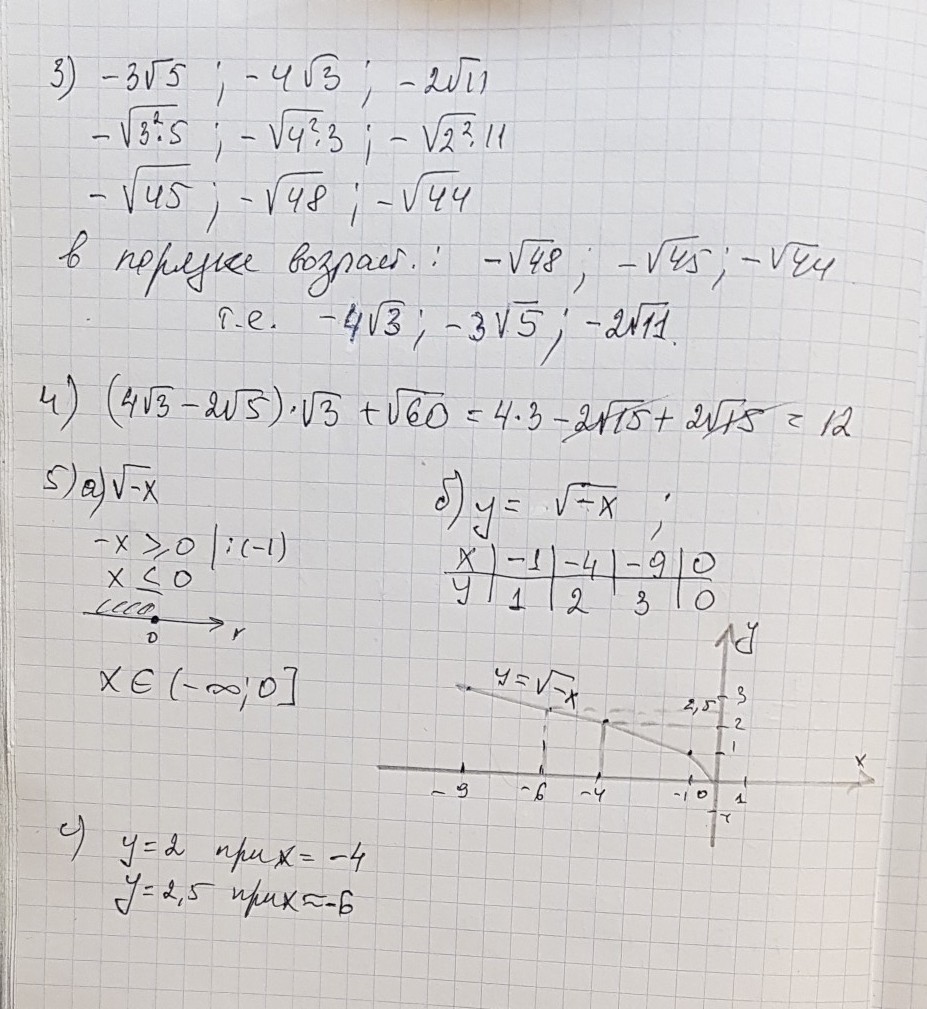 3) -3√5 ; -4√3 ; -2√11
-√3²·5 ; -√4²·3 ; -√2²·11
-√45 ; -√48 ; -√44
в порядке возраст. : -√48 ; -√45 ; -√44
т.е. -4√3 ; -3√5 ; -2√11.
4) (4√3 - 2√5)·√3 + √60 = 4·3 - 2√15 + 2√15 = 12
5) а) √-x
-x ⩾ 0 | :(-1)
x ≤ 0
0
x ∈ (-∞; 0]
б) y = √-x ;
x | -1 | -4 | -9 | 0
y | 1 | 2 | 3 | 0
y
y = √-x
3
2,5
2
1
x
-9 -6 -4 -1 0 1
с) y = 2 при x = -4
y = 2,5 при x ≈ -6